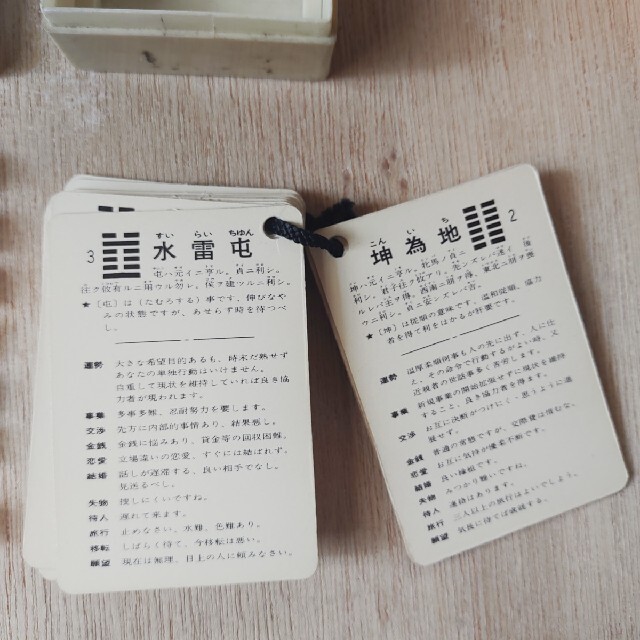 3
すい らい ちゆん
水雷屯
屯ハ元イニ亨ル。貞ニ利シ。
往ク攸有ルニ用ウル勿レ。侯ヲ建ツルニ利シ。
★〔屯〕は（たむろする）事です。伸びなや
みの状態ですが、あせらず時を待つべ
し。
運勢 大きな希望目的あるも、時未だ熟せず
あなたの単独行動はいけません。
自重して現状を維持していれば良き協
力者が現われます。
事業 多事多難、忍耐努力を要します。
交渉 先方に内部的事情あり、結果悪し。
金銭 金銭に悩みあり、貸金等の回収困難。
恋愛 立場違いの恋愛、すぐには結ばれず。
結婚 話しが遅滞する、良い相手でなし。
見送るべし。
失物 探しにくいですね。
待人 遅れて来ます。
旅行 止めなさい、水難、色難あり。
移転 しばらく待て、今移転は悪い。
願望 現在は無理、目上の人に頼みなさい。
2
こん い ち
坤為地
坤ハ元イニ亨ル。牝馬ノ貞ニ
利シ。君子往ク攸アリ。先ンズレバ迷イ後
ルレバ主ヲ得。西南ニ朋ヲ得、東北ニ朋ヲ喪
ウニ利シ。貞ニ安ンズレバ吉。
★〔坤〕は従順の意味です。温和従順、協力
者を得て利をはかるが肝要です。
運勢 温厚柔順何事も人の先に出ず、人に仕
え、その命令で行動するがよい時、又
近親者の世話事多く苦労します。
事業 新規事業の開始拡張せずに現状を維持
すること、良き協力者を得ます。
交渉 お互に決断がつけにくく思うように進
展せず。
金銭 普通の状態ですが、交際費は慎むな。
恋愛 お互に気持が優柔不断です。
結婚 良い縁組です。
失物 みつかり難いですね。
待人 連絡はあります。
旅行 二人以上の旅行はよいでしょう。
願望 気長に待てば成就する。